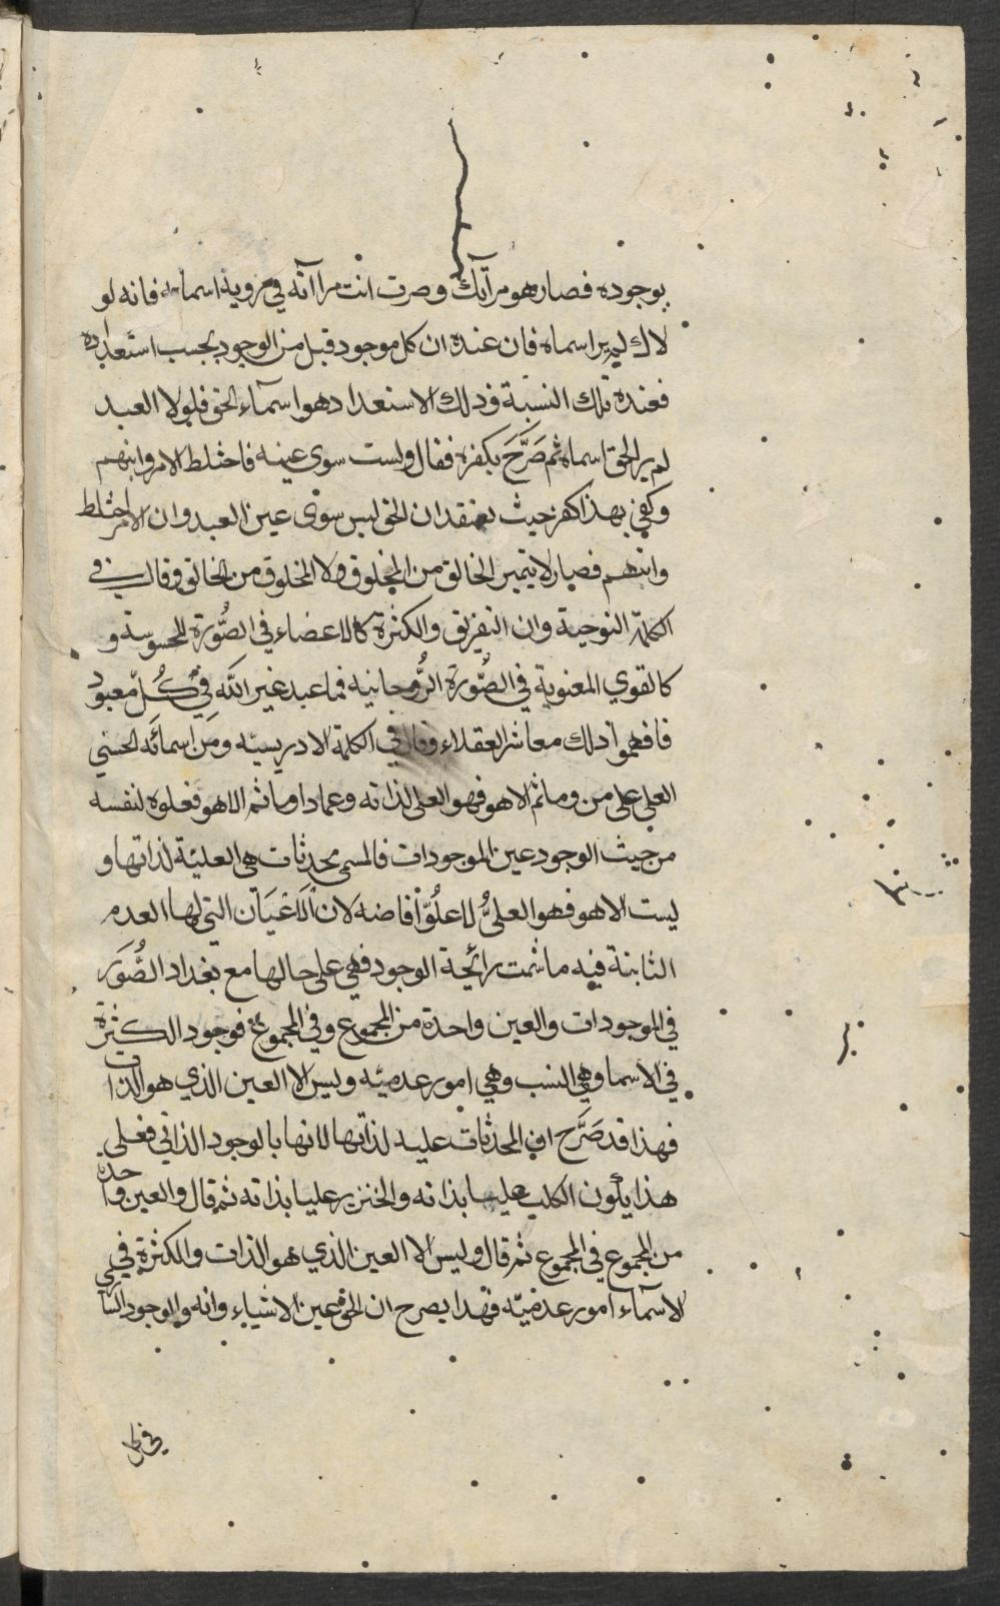 بوجوده فصار هو مرآتك وصرت انت مراآته في مروية اسمايه فانه لو
لاك لم ير اسماه فان عنده ان كل موجود قبل من الوجود بحسب استعداده
فعنده تلك النسبة وذلك الاستعداد هو اسمآء الحق فلولا العبد
لم ير الحق اسماه ثم صَرَّحَ بكفره فقال وليست سوى عينه فاختلط الامر وانبهم
وكفى بهذا كفر حيث نعتقد ان الحق ليس سوى عين العبد وان الامر اختلط
وانبهم فصار لا يتميز الخالق من المخلوق ولا المخلوق من الخالق وقال في
الكلمة النوحية وان التفريق والكثرة كالاعضاء في الصُّورة المحسوسة و
كالقوي المعنوية في الصُّورة الرُّوحانيه فما عبد غير الله في كُلّ معبود
فافهموا ذلك معاشر العقلاء وقال في الكلمة الادريسيه ومن اسمائه الحسني
العلي على من وما ثم الا هو فهو العلى لذاته وعماذا وما ثم الا هو فعلوه لنفسه
من حيث الوجود عين الموجودات فالمسمى محدثات هى العليّة لذاتها و
ليست الا هو فهو العليُّ لا علُوّ اضافه لان الاعيَان التي لها العدم
الثابتة فيه ما شمت رائحة الوجود فهي على حالها مع تعداد الصُّوَر
في الموجودات والعين واحدة من المجموع وفي المجموع فوجود الكثرة
في الاسما وهي النسب وهي امور عدميّه وليس الا العين الذي هو الذات
فهذا قد صَرَّح ان المحدثات عليه لذاتها لانها بالوجود الذاتي فعلى
هذا يكُون الكلب عليا بذاته والخنزير عليا بذاته ثم قال والعين واحدة
من المجموع في المجموع ثم قال وليس الا العين الذي هو الذات والكثرة في
الاسمآء امور عدميّه فهذا يصرح ان الحق عين الاشياء وانه والوجود الساري